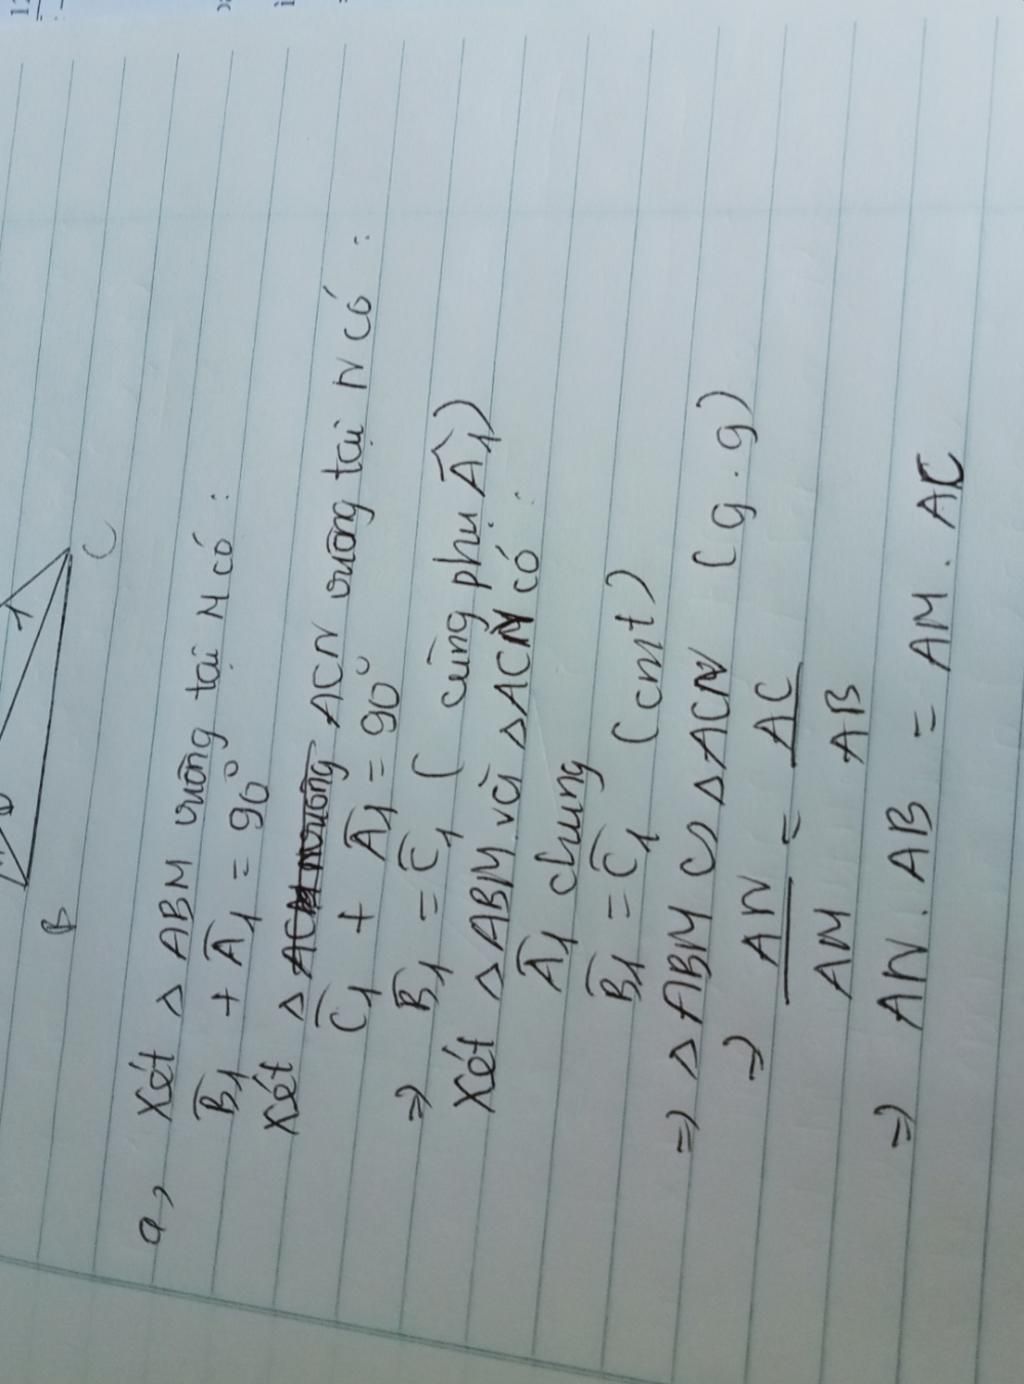 B C
a, Xét △ ABM vuông tại M có :
B̂1 + Â1 = 90⁰
Xét △ ACN vuông tại N có :
Ĉ1 + Â1 = 90⁰
⇒ B̂1 = Ĉ1 ( cùng phụ Â1)
Xét △ABM và △ACN có :
Â1 chung
B̂1 = Ĉ1 (cmt)
⇒ △ABM ∽ △ACN (g.g)
⇒ AN/AM = AC/AB
⇒ AN. AB = AM. AC